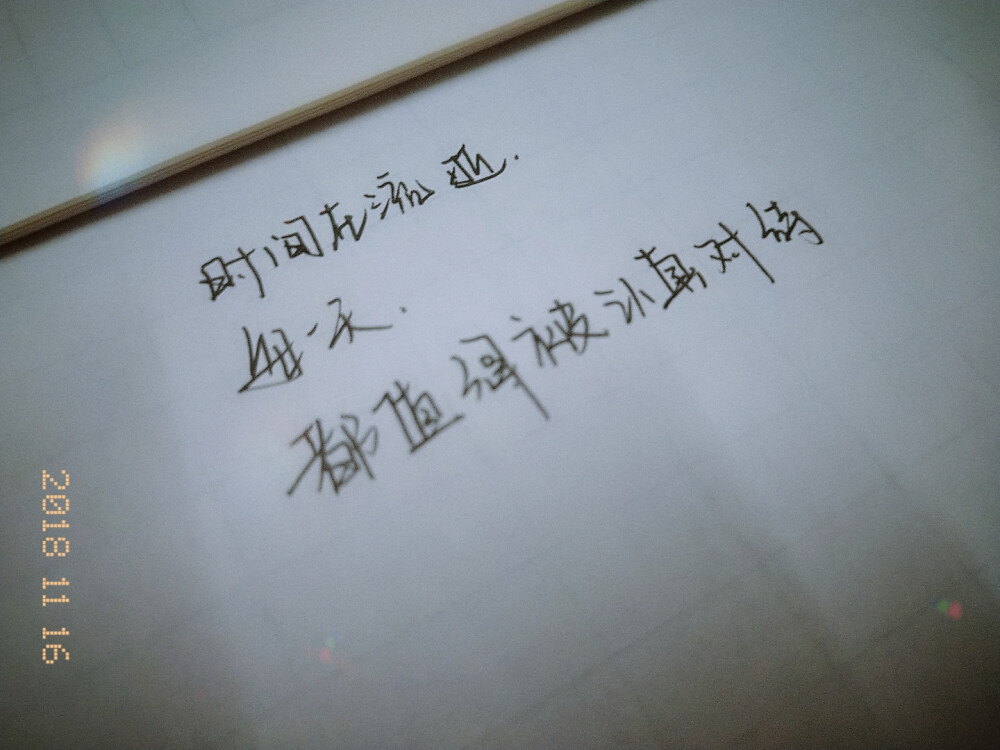 时间在流逝.
每一天.
都值得被认真对待
2018 11 16